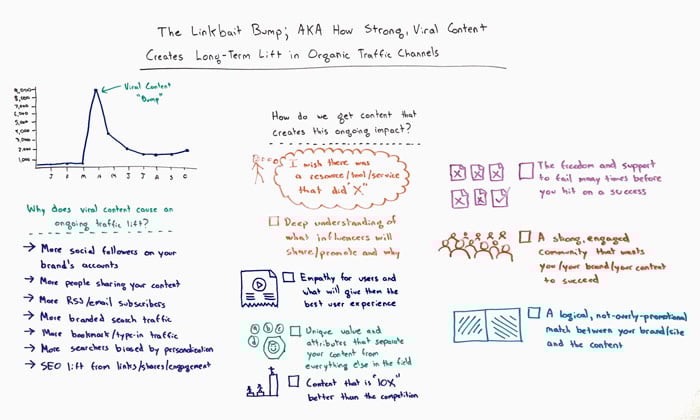 The Linkbait Bump; AKA How Strong, Viral Content
Creates Long-Term Lift in Organic Traffic Channels
8,000
7,000
6,000
5,000
4,000
3,000
2,000
1,000
Viral Content
"Bump"
J F M A M J J A S O
Why does viral content cause an
ongoing traffic lift?
→ More social followers on your
brand's accounts
→ More people sharing your content
→ More RSS/email subscribers
→ More branded search traffic
→ More bookmark/type-in traffic
→ More searchers biased by personalization
→ SEO lift from links/shares/engagement
How do we get content that
creates this ongoing impact?
I wish there was
a resource/tool/service
that did "X"
Deep understanding of
what influencers will
share/promote and why
Empathy for users and
what will give them the
best user experience
a b c
d
Unique value and
attributes that separate
your content from
everything else in the field
Content that is "10X"
better than the competition
The freedom and support
to fail many times before
you hit on a success
A strong, engaged
community that wants
you/your brand/your content
to succeed
A logical, not-overly-promotional
match between your brand/site
and the content